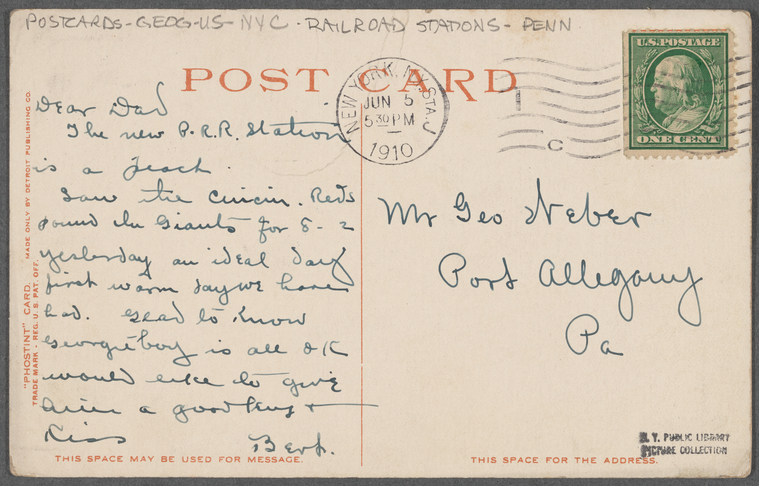 POSTCARDS-GEOG-US-NYC-RAILROAD STATIONS-PENN
POST CARD
U.S. POSTAGE
ONE CENT
NEW YORK, N.Y. STA. J
JUN 5
530 PM
1910
C
Dear Dad
The new P.R.R. Station
is a peach.
Saw the Cincin. Reds
pound the Giants for 8-2
yesterday an ideal day
first warm day we have
had. Glad to know
Georgie boy is all OK
would like to give
him a good hug +
Kiss
Bert.
Mr Geo Weber
Port Allegany
Pa
"PHOSTINT" CARD. MADE ONLY BY DETROIT PUBLISHING CO.
TRADE MARK - REG. U.S. PAT. OFF.
THIS SPACE MAY BE USED FOR MESSAGE.
THIS SPACE FOR THE ADDRESS.
N. Y. PUBLIC LIBRARY
PICTURE COLLECTION